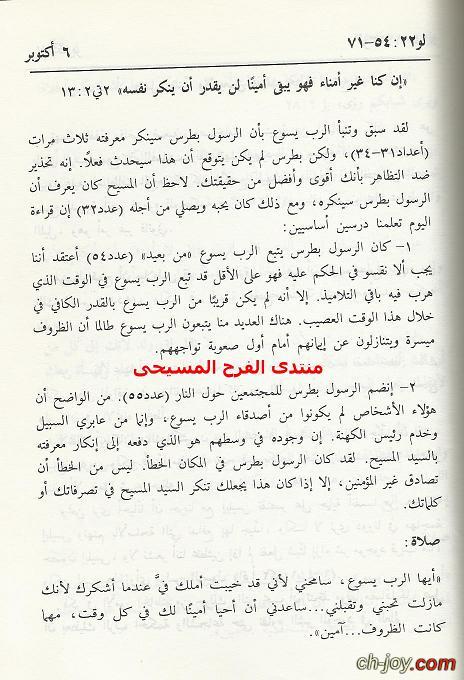 لو٢٢: ٥٤-٧١
٦ أكتوبر
«إن كنا غير أمناء فهو يبقى أمينًا لن يقدر أن ينكر نفسه» ٢تي٢: ١٣
لقد سبق وتنبأ الرب يسوع بأن الرسول بطرس سينكر معرفته ثلاث مرات
(أعداد٣١-٣٤)، ولكن بطرس لم يكن يتوقع أن هذا سيحدث فعلاً. إنه تحذير
ضد التظاهر بأنك أقوى وأفضل من حقيقتك. لاحظ أن المسيح كان يعرف أن
الرسول بطرس سينكره، ومع ذلك كان يحبه ويصلي من أجله (عدد٣٢) إن قراءة
اليوم تعلمنا درسين أساسيين:
١- كان الرسول بطرس يتبع الرب يسوع «من بعيد» (عدد٥٤) أعتقد أننا
يجب ألا نقسو في الحكم عليه فهو على الأقل قد تبع الرب يسوع في الوقت الذي
هرب فيه باقي التلاميذ. إلا أنه لم يكن قريبًا من الرب يسوع بالقدر الكافي في
خلال هذا الوقت العصيب. هناك العديد منا يتبعون الرب يسوع طالما أن الظروف
ميسرة ويتنازلون عن إيمانهم أمام أول صعوبة تواجههم.
منتدى الفرح المسيحى
٢- إنضم الرسول بطرس للمجتمعين حول النار (عدد٥٥). من الواضح أن
هؤلاء الأشخاص لم يكونوا من أصدقاء الرب يسوع، وإنما من عابري السبيل
وخدم رئيس الكهنة. إن وجوده في وسطهم هو الذي دفعه إلى إنكار معرفته
بالسيد المسيح. لقد كان الرسول بطرس في المكان الخطأ. ليس من الخطأ أن
تصادق غير المؤمنين، إلا إذا كان هذا يجعلك تنكر السيد المسيح في تصرفاتك أو
كلماتك.
صلاة:
«أيها الرب يسوع، سامحني لأني قد خيبت أملك فيَّ عندما أشكرك لأنك
مازلت تحبني وتقبلني...ساعدني أن أحيا أمينًا لك في كل وقت، مهما
كانت الظروف...آمين».
ch-joy.com